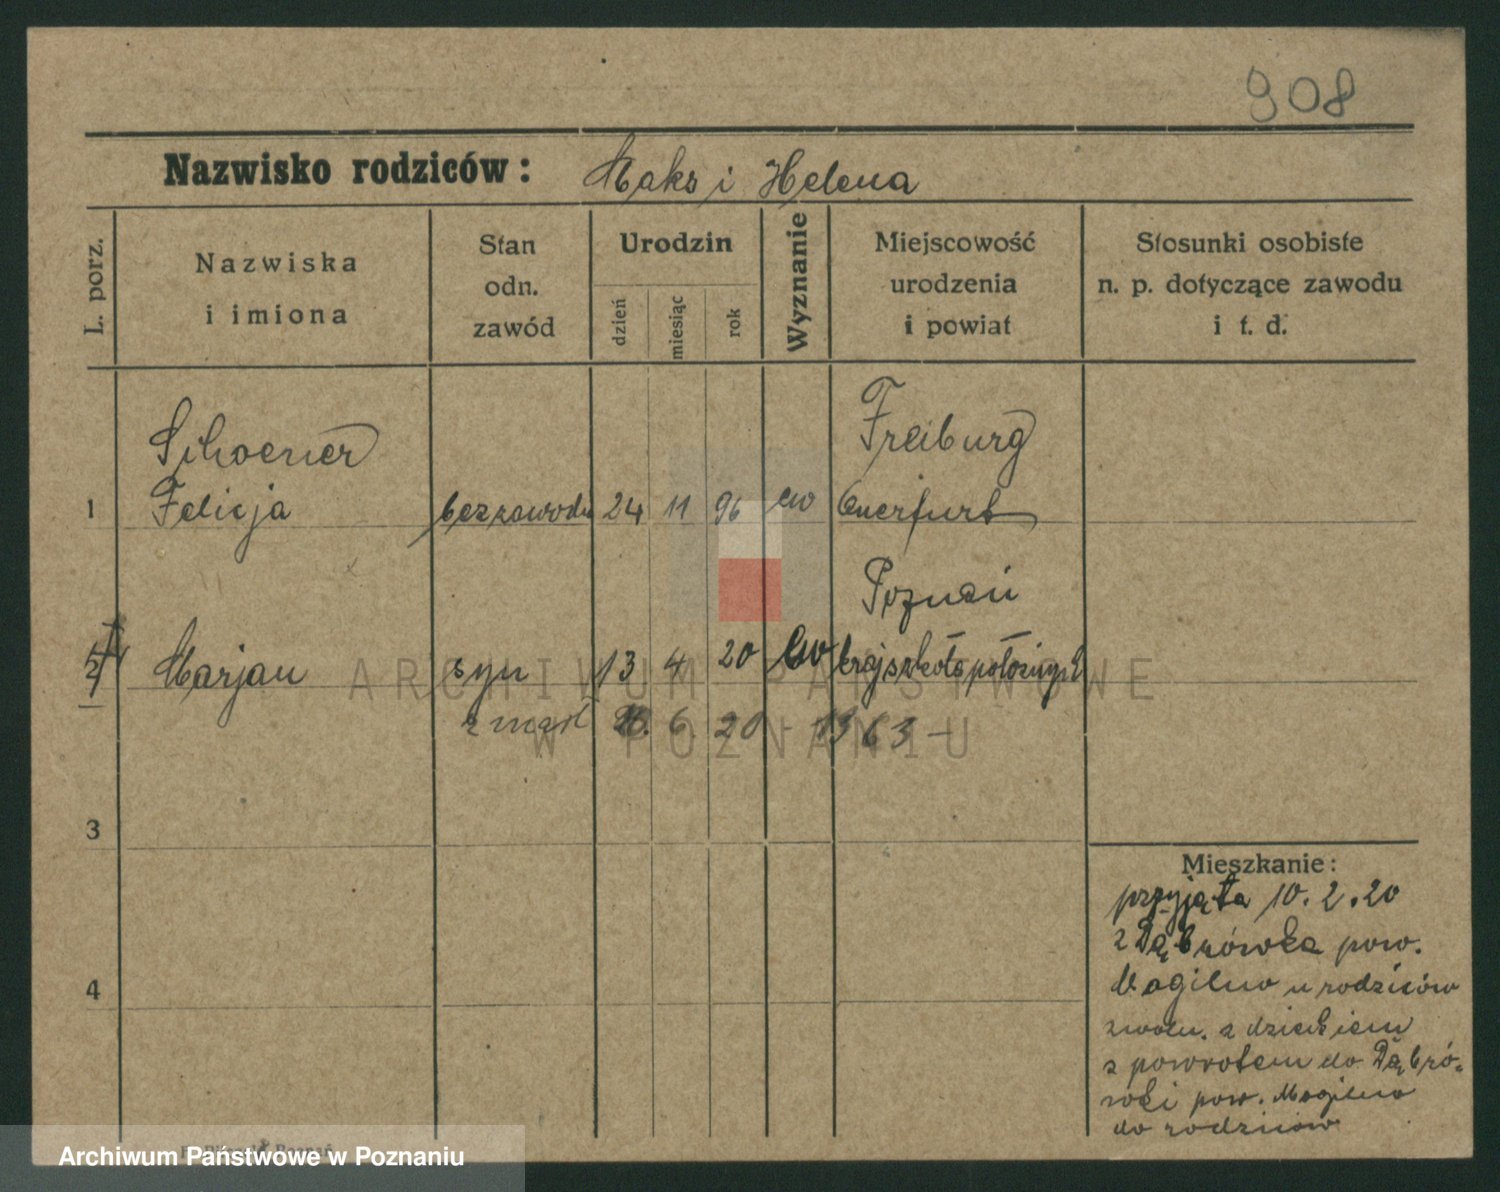 908
Nazwisko rodziców: Maks i Helena
L. porz.
Nazwiska
i imiona
Stan
odn.
zawód
Urodzin
dzień
miesiąc
rok
Wyznanie
Miejscowość
urodzenia
i powiat
Stosunki osobiste
n. p. dotyczące zawodu
i t. d.
Schoener Freiburg
1 Felicja bez zawodu 24 11 96 ew Querfurt
Poznań
2 Marjan syn 13 4 20 ew kraj szkoła położnych
zmarł 6. 20 1363 —
3
4
Mieszkanie:
przyjęta 10. 2. 20
z Dąbrówka pow.
Mogilno u rodziców
zwoln. z dzieckiem
z powrotem do Dąbró-
wki pow. Mogilno
do rodziców
ARCHIWUM PAŃSTWOWE
W POZNANIU
Archiwum Państwowe w Poznaniu